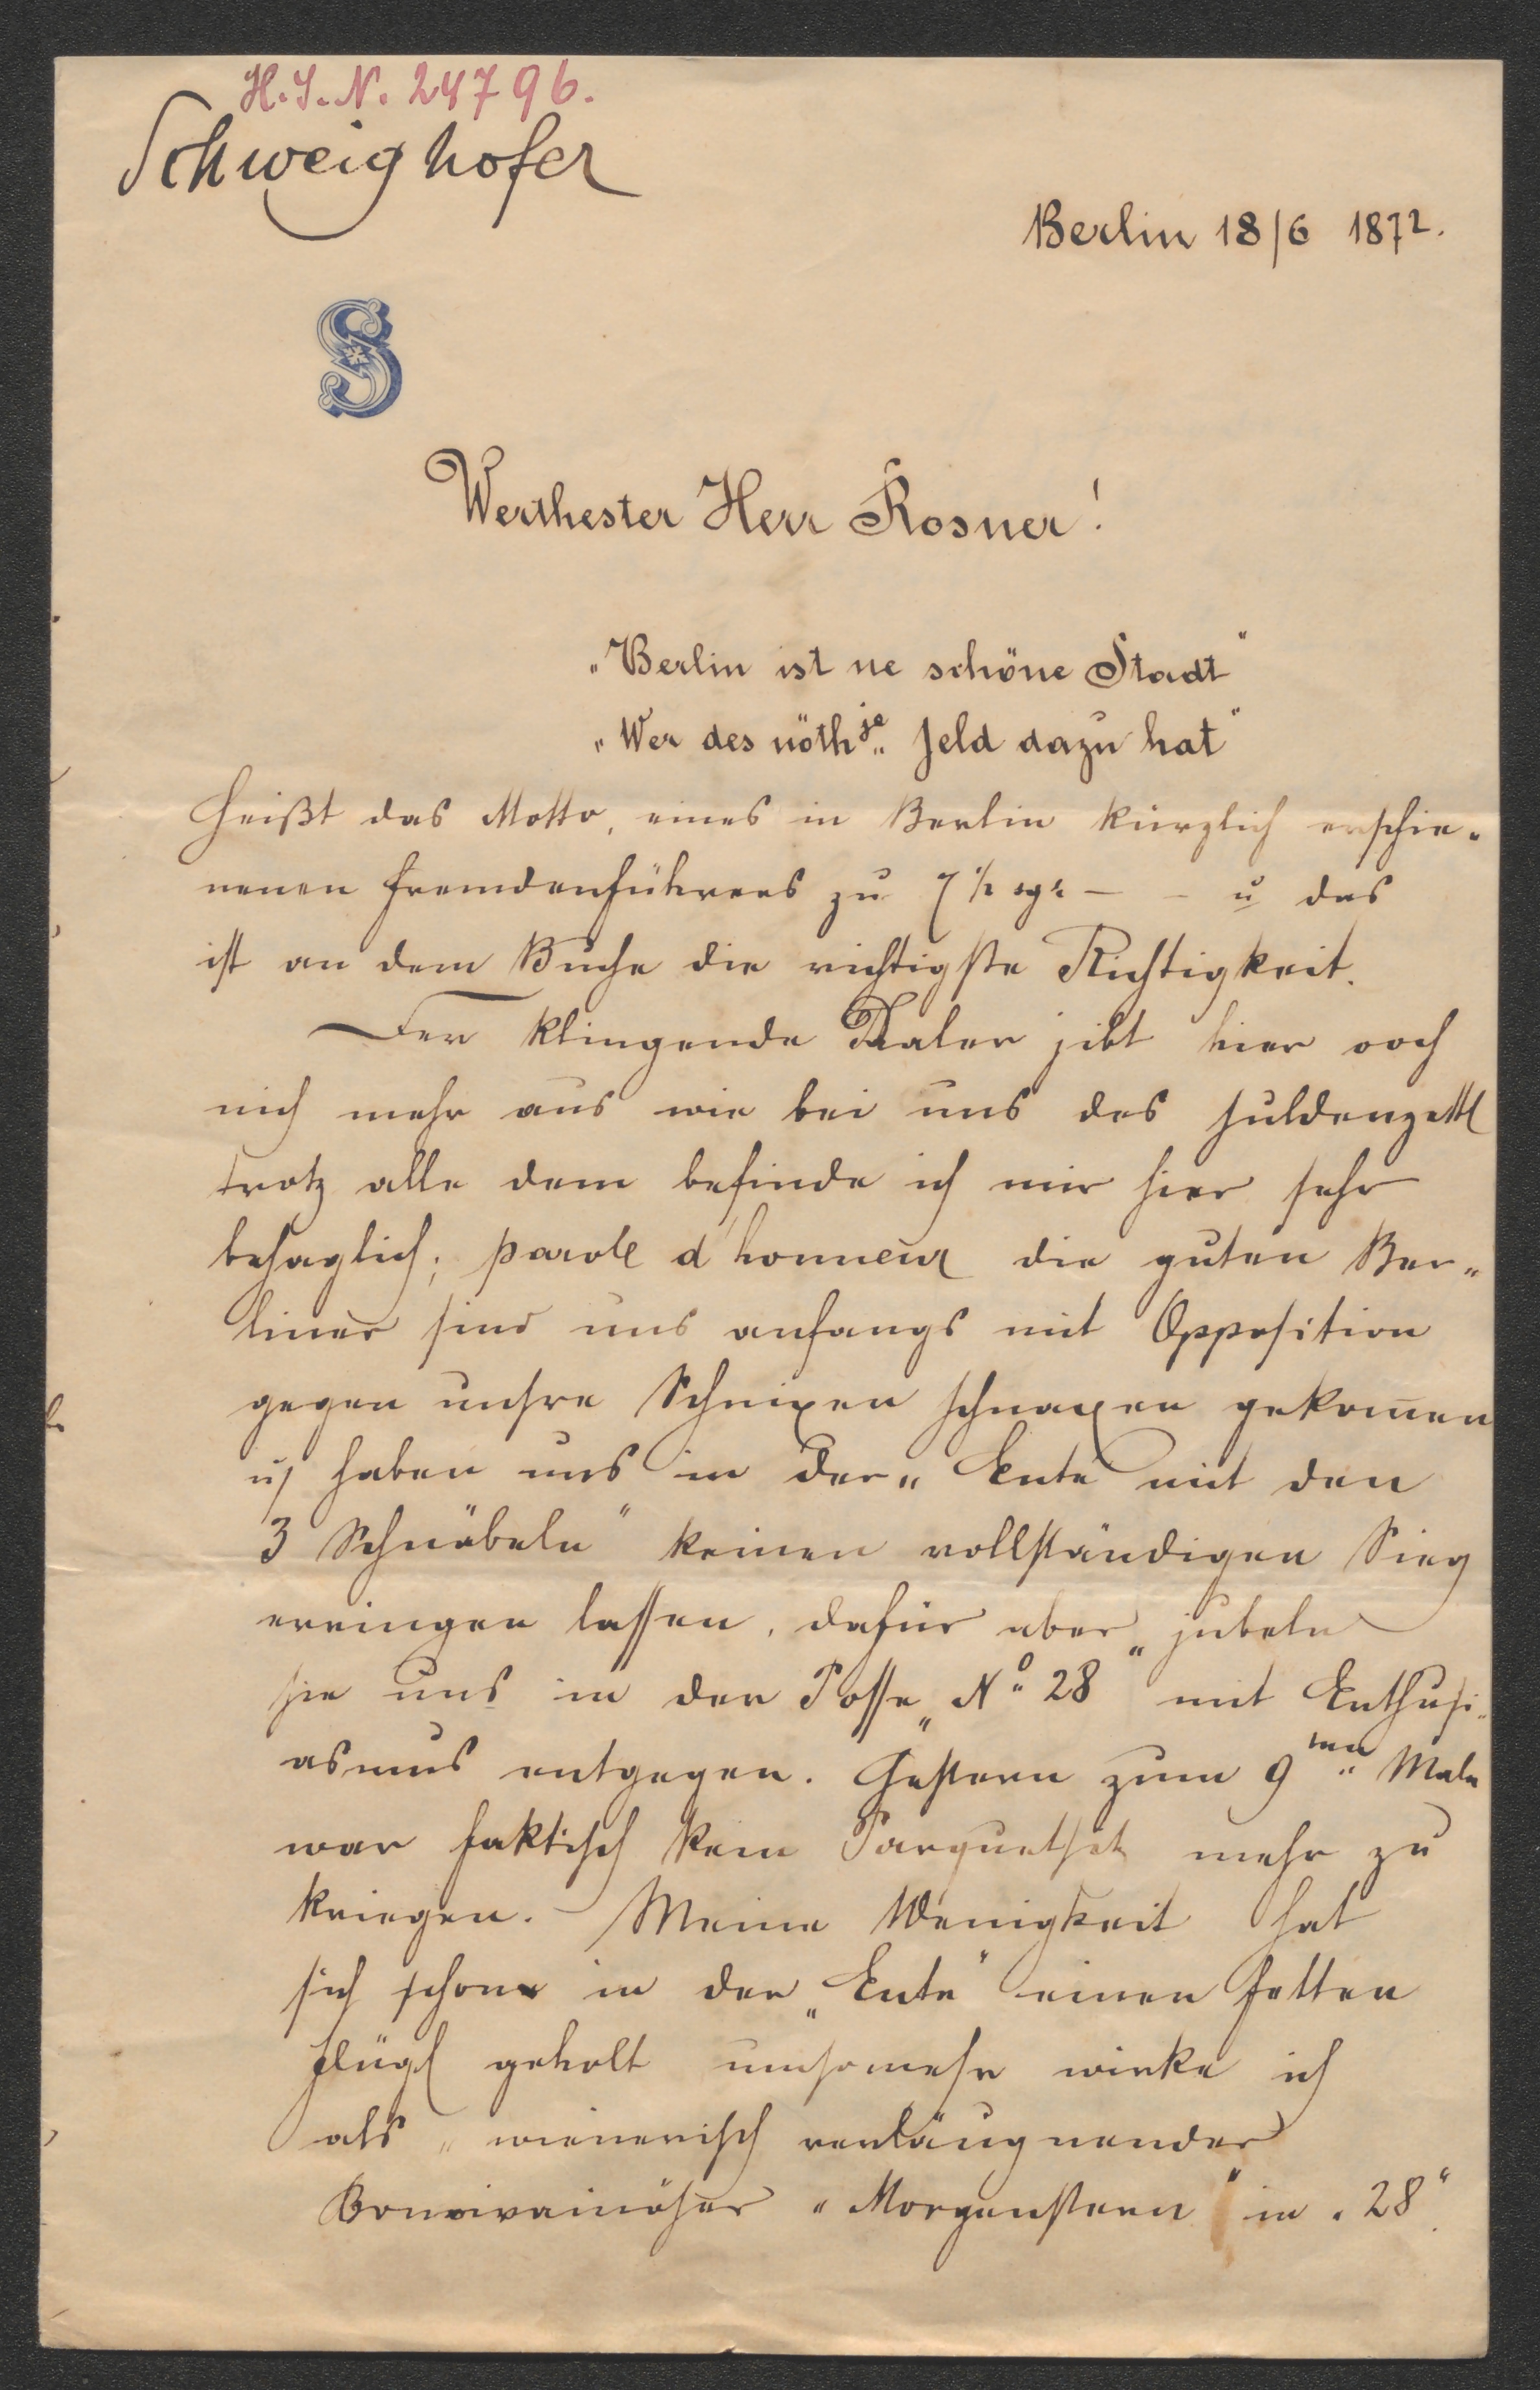 H. I. N. 24796.
Schweighofer
Berlin 18/6 1872.
S
Werthester Herr Rosner!
„Berlin ist ne schöne Stadt“
„Wer des nöthje Jeld dazu hat“
heißt das Motto, eines in Berlin kürzlich erschie-
nenen Fremdenführers zu 7 ½ sgr – – u das
ist an dem Buche die richtigste Richtigkeit.
Der klingende Thaler jibt hier ooch
nich mehr aus wie bei uns des Juldenzettl
trotz alle dem befinde ich mir hier sehr
behaglich; parole d'honneur die guten Ber-
liner sind uns anfangs mit Opposition
gegen unsre Schnixen schnaxen gekom̄en
u haben uns in der „Ente mit den
3 Schnäbeln“ keinen vollständigen Sieg
erringen lassen, dafür aber jubeln
sie uns in der Posse „No 28“ mit Enthusi-
asmus entgegen. Gestern zum 9ten Male
war faktisch kein Parquetsitz mehr zu
kriegen. – Meine Wenigkeit hat
sich schon in der „Ente“ einen fetten
Flügl geholt umsomehr wirke ich
als „wienerisch verläugnender
Bonvivainöser „Morgenstern“ in „28“.